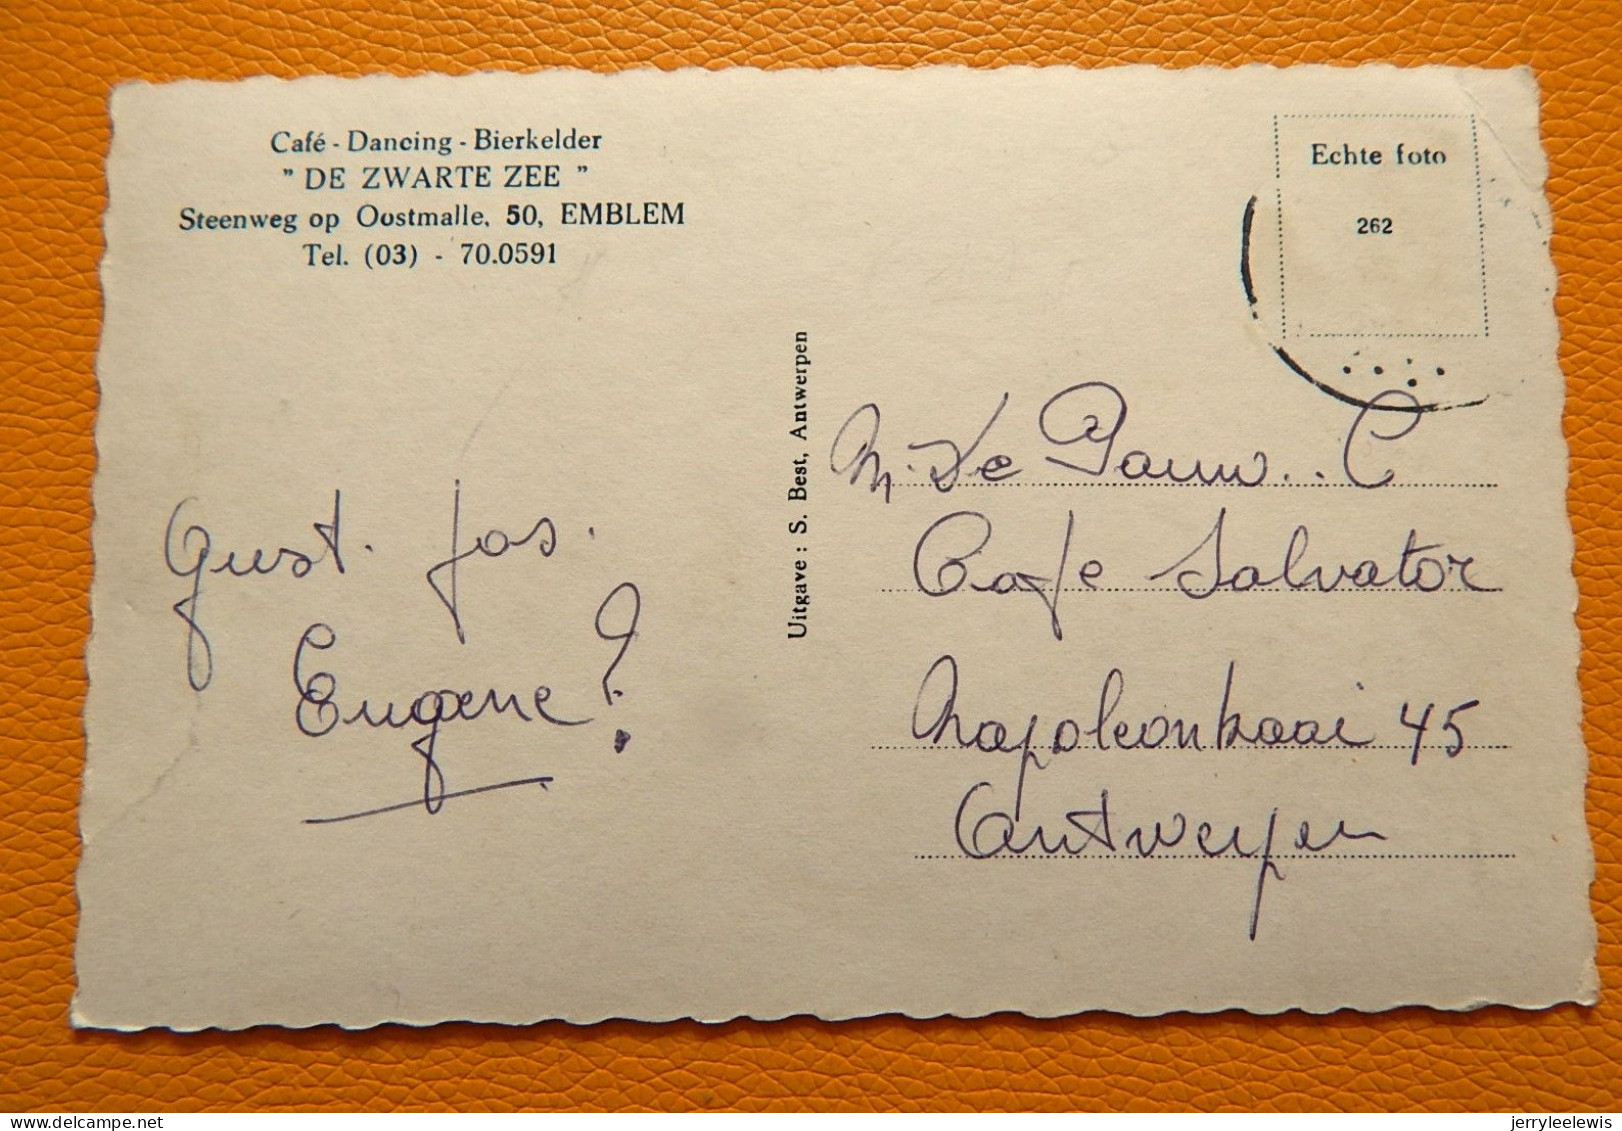 Café - Dancing - Bierkelder
" DE ZWARTE ZEE "
Steenweg op Oostmalle, 50, EMBLEM
Tel. (03) - 70.0591
Gust. Jos.
Eugene?
Uitgave : S. Best, Antwerpen
Echte foto
262
M. De Pauw.. C
Cafe Salvator
Napoleonkaai 45
Antwerpen
delcampe.net
jerryleelewis